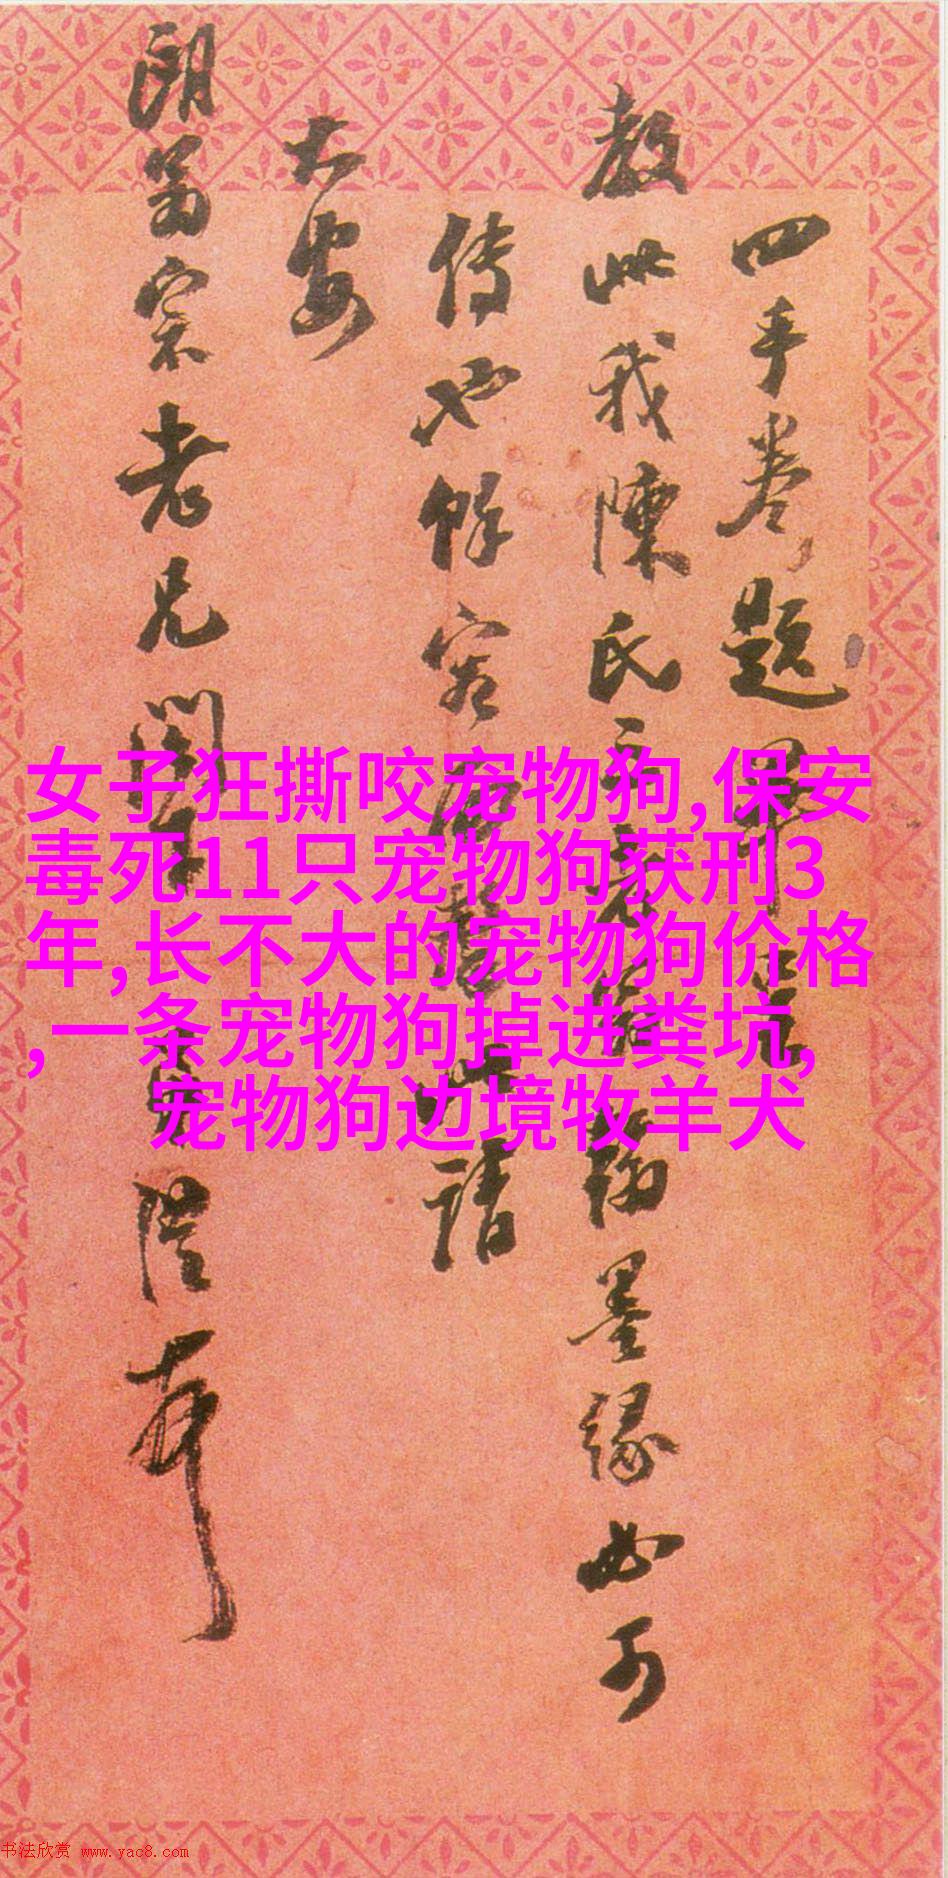 四手卷題畢呈
教此我陳氏翰墨緣必可
傳也餘容面此請
大安
朗翁宗老兄閣下
女子狂撕咬宠物狗,保安
毒死11只宠物狗获刑3
年,长不大的宠物狗价格
,一条宠物狗掉进粪坑,
宠物狗边境牧羊犬
书法欣赏 www.yac8.com